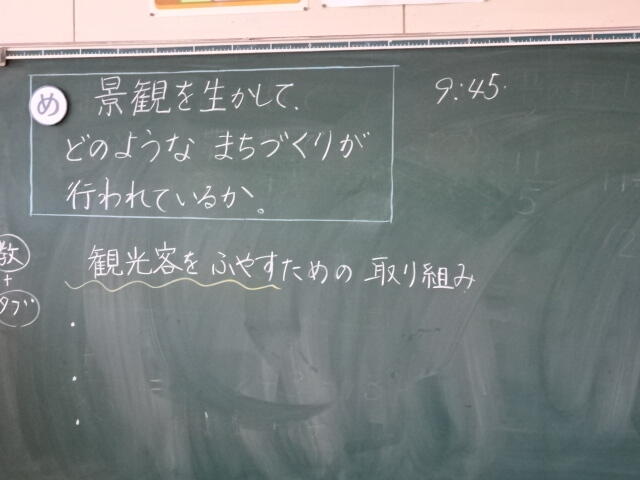 め
景観を生かして、
どのような まちづくりが
行われているか。
9:45
教
+
タブ
観光客をふやすための 取り組み